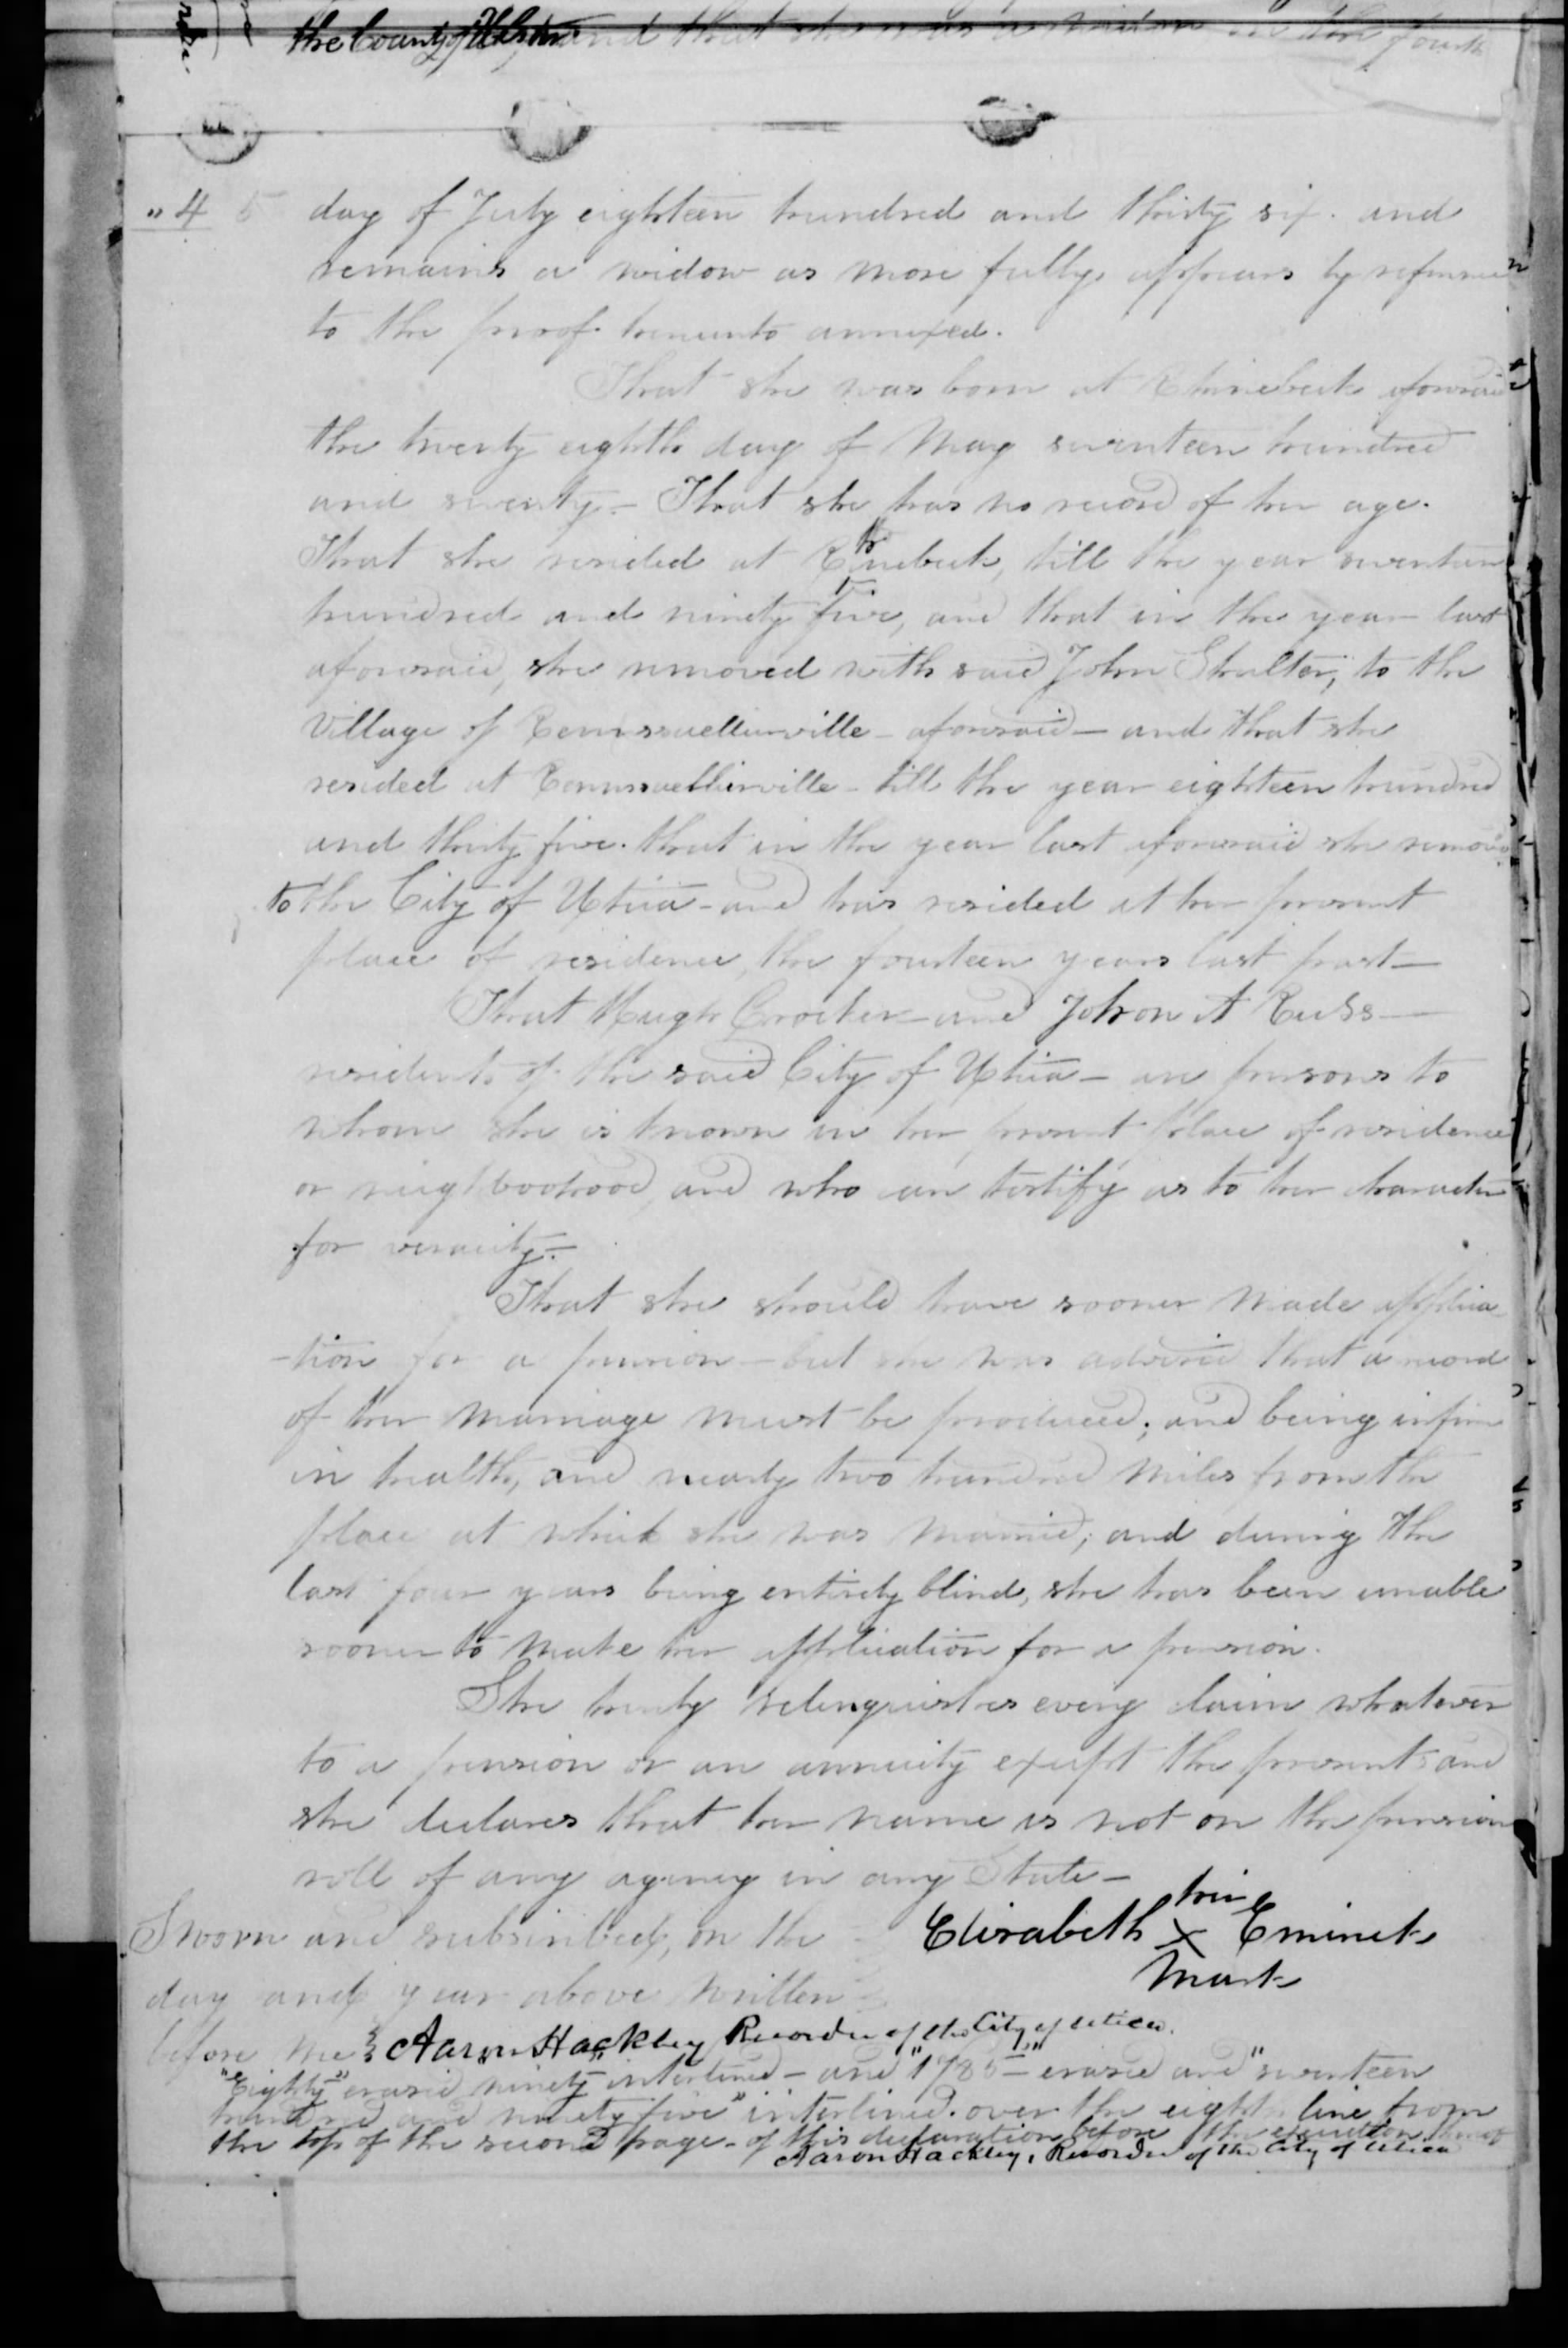 the County of and that she was a widow on the fourth
" 4 5 day of July eighteen hundred and thirty six. and
remains a widow as more fully appears by reference
to the proof hereunto annexed.
That she was born at Rhinebeck aforesaid
the twenty eighth day of May seventeen hundred
and seventy - That she has no record of her age.
That she resided at Rhinebeck, till the year seventeen
hundred and ninety five, and that in the year last
aforesaid, she removed with said John Shulter, to the
Village of Renssaellerville - aforesaid - and that she
resided at Renssaellierville - till the year eighteen hundred
and thirty five. that in the year last aforesaid she removed
to the City of Utica - and has resided at her present
place of residence, the fourteen years last past -
That Hugh Crocker - and John A Russ -
residents of the said City of Utica - are persons to
whom she is known in her present place of residence
or neighboohood, and who can testify as to her character
for veracity. -
That she should have sooner made applica
-tion for a pension - but she was advised that a record
of her marriage must be produced; and being infirm
in health, and nearly two hundred miles from the
place at which she was married; and during the
last four years being entirely blind, she has been unable
sooner to make her application for a pension.
She hereby relinquishes every claim whatever
to a pension or an annuity except the present; and
she declares that her name is not on the pension
roll of any agency in any State -
Sworn and subscribed, on the
day and year above written
her
Elizabeth X Eminek
mark
before me Aaron Hackley Recorder of the City of Utica.
"Eighty" erased "ninety" interlined - and "1785" - erased and "seventeen
hundred and ninety five" interlined. over the eighth line from
the top of the second page - of this declaration before the execution thereof
Aaron Hackley, Recorder of the City of Utica